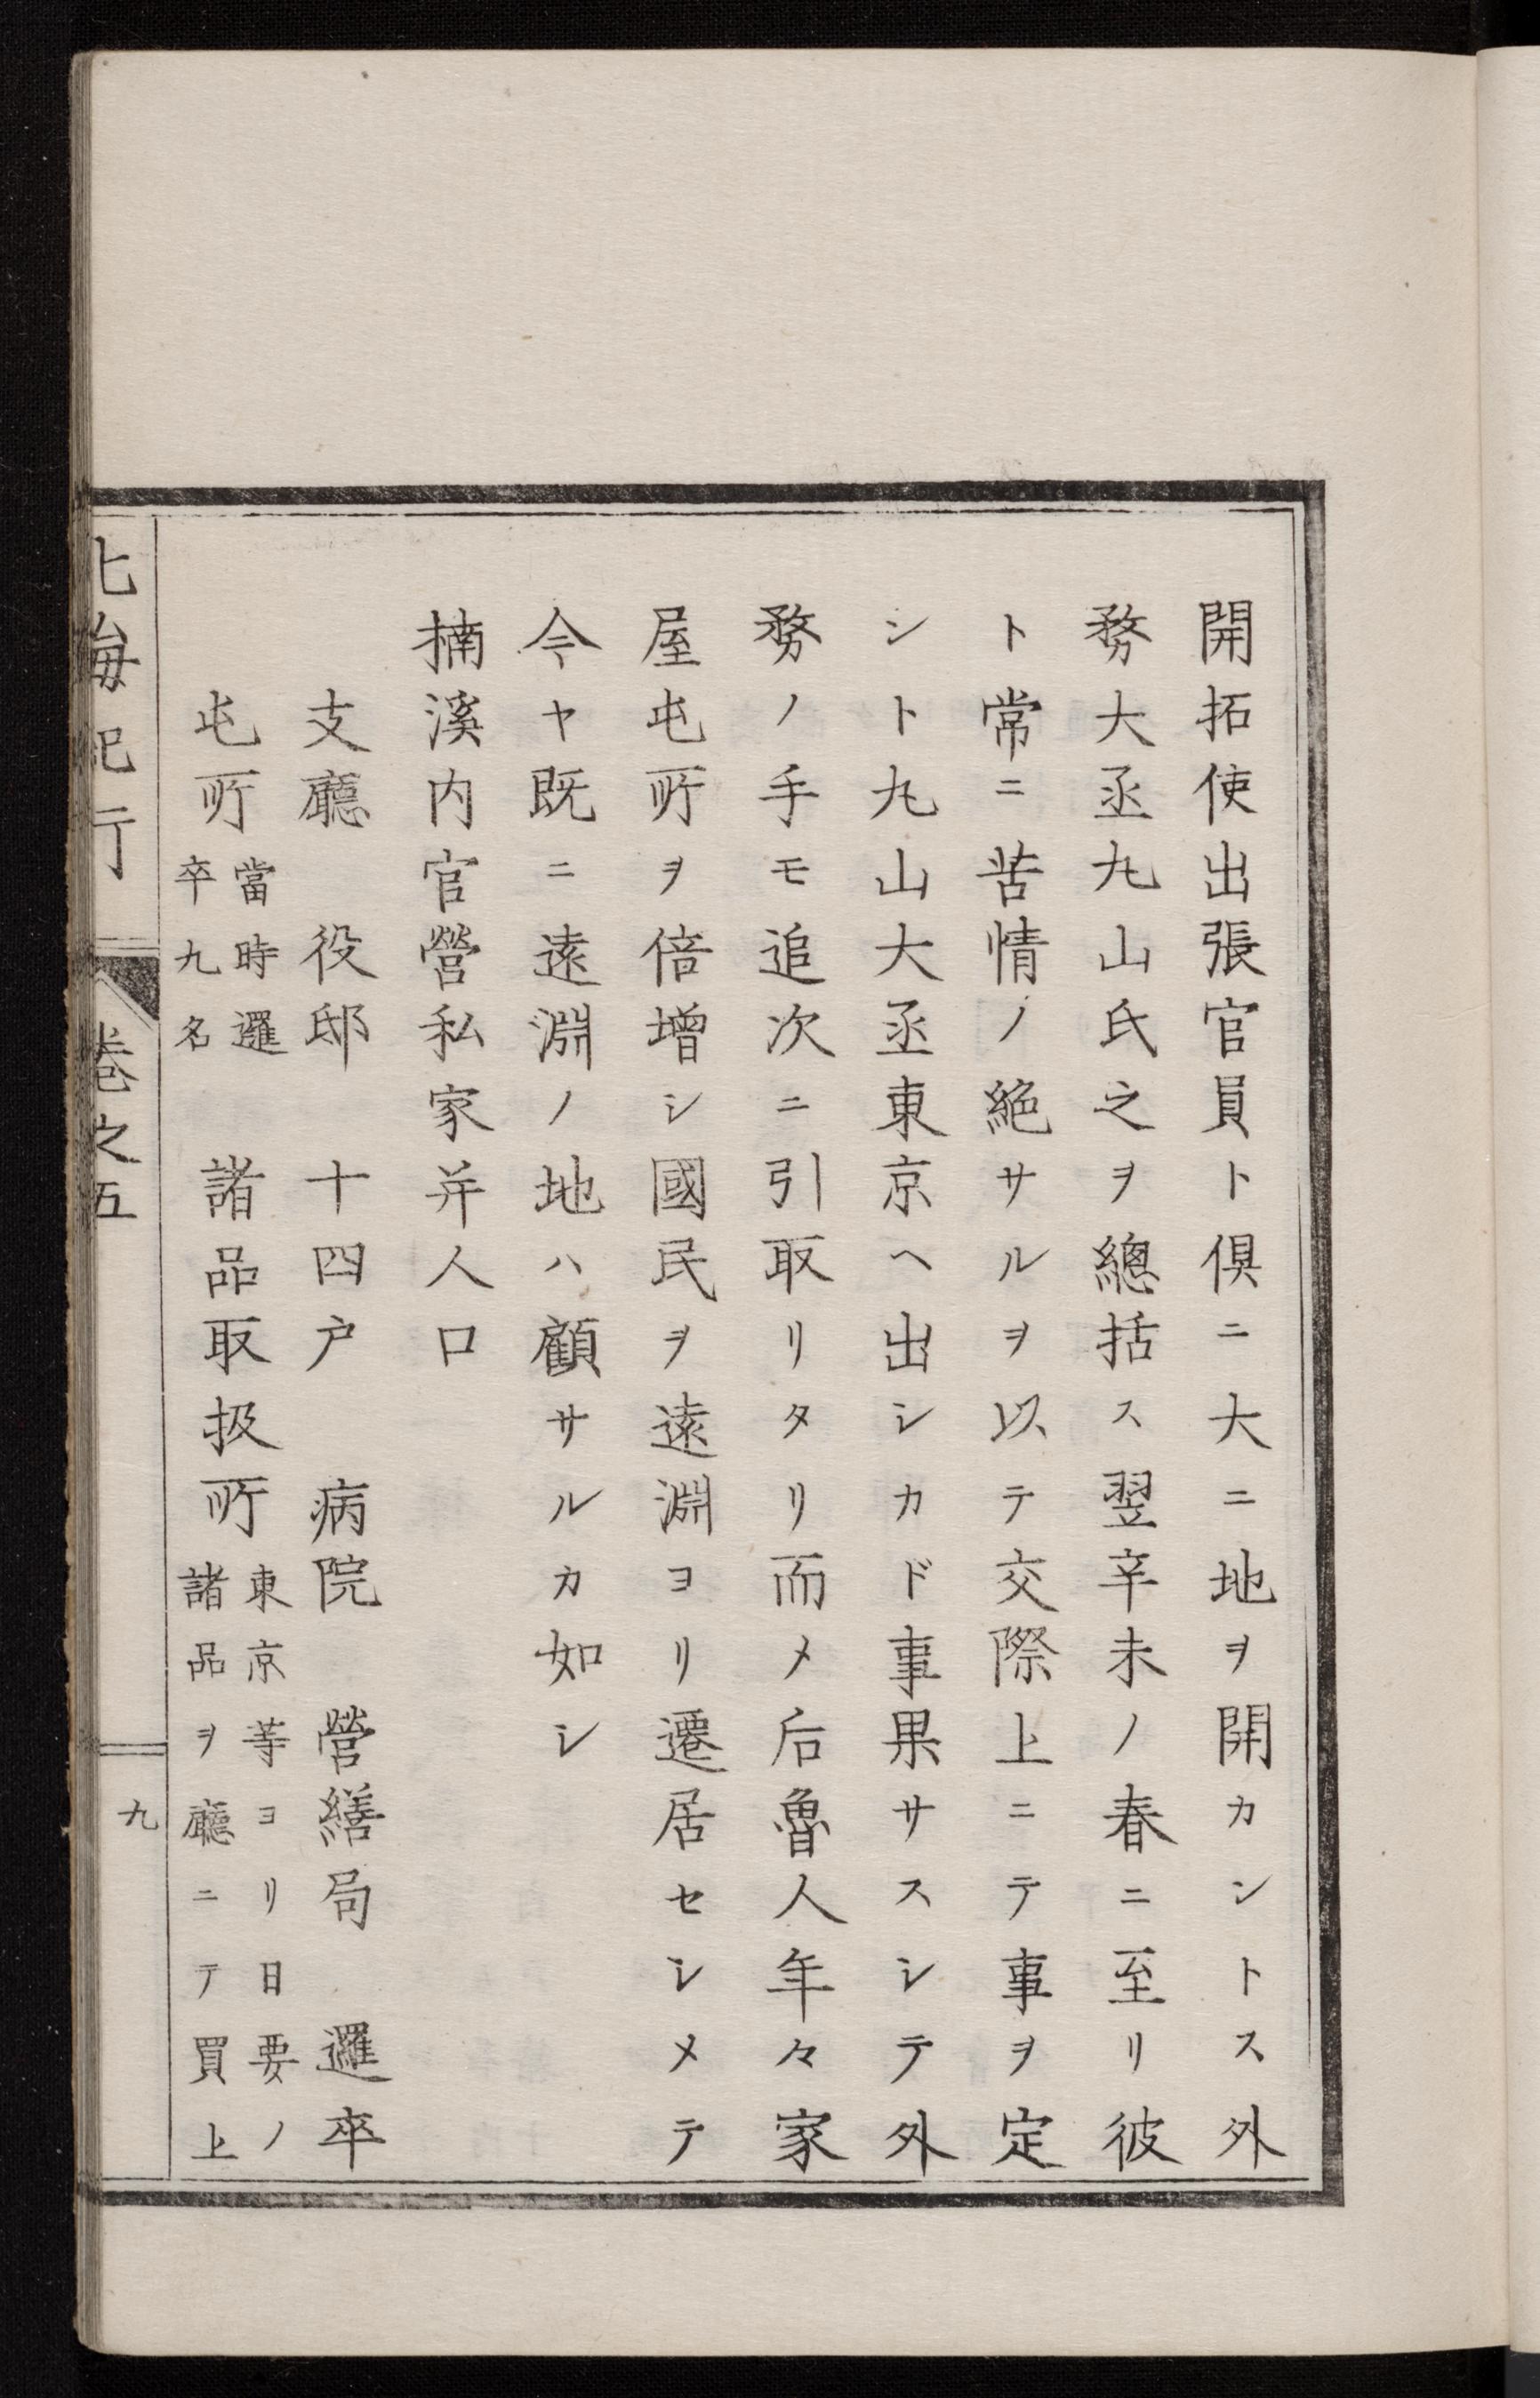 開拓使出張官員ト倶ニ大ニ地ヲ開カントス外
務大丞丸山氏之ヲ總括ス翌辛未ノ春ニ至リ彼
ト常ニ苦情ノ絶サルヲ以テ交際上ニテ事ヲ定
シト丸山大丞東京ヘ出シカド事果サスシテ外
務ノ手モ追次ニ引取リタリ而メ后魯人年々家
屋屯所ヲ倍増シ國民ヲ遠淵ヨリ遷居セシメテ
今ヤ既ニ遠淵ノ地ハ顧サルカ如シ
楠溪内官營私家并人口
支廳　役邸　十四戸　病院　營繕局　邏卒
屯所 當時邏
卒九名 諸品取扱所 東京等ヨリ日要ノ
諸品ヲ廳ニテ買上
北海紀行 卷之五 九